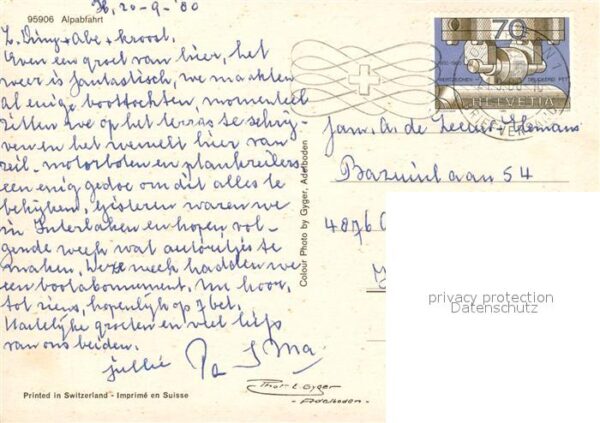 95906 Alpabfahrt
20-9-'80
L. Diny + Abe + kroost.
Even een groet van hier, het
weer is fantastisch, we maakten
al enige boottochten, momenteel
zitten we op het terras te schrij
ven en het wemelt hier van
zeil-motorboten en plankzeilers
een enig gedoe om dit alles te
bekijken, gisteren waren we
in Interlaken en hopen vol-
gende week wat autoritjes te
maken, deze week hadden we
een bootabonnement. Nu hoor,
tot ziens, hopenlijk op 7 okt.
Hartelijke groeten en veel liefs
van ons beiden.
jullie Pa + Ma
Printed in Switzerland - Imprimé en Suisse
Colour Photo by Gyger, Adelboden
70
HELVETIA
Fam. A. de Leeuw-
Bazuinlaan 54
4876
privacy protection
Datenschutz
Gyger
- Adelboden -